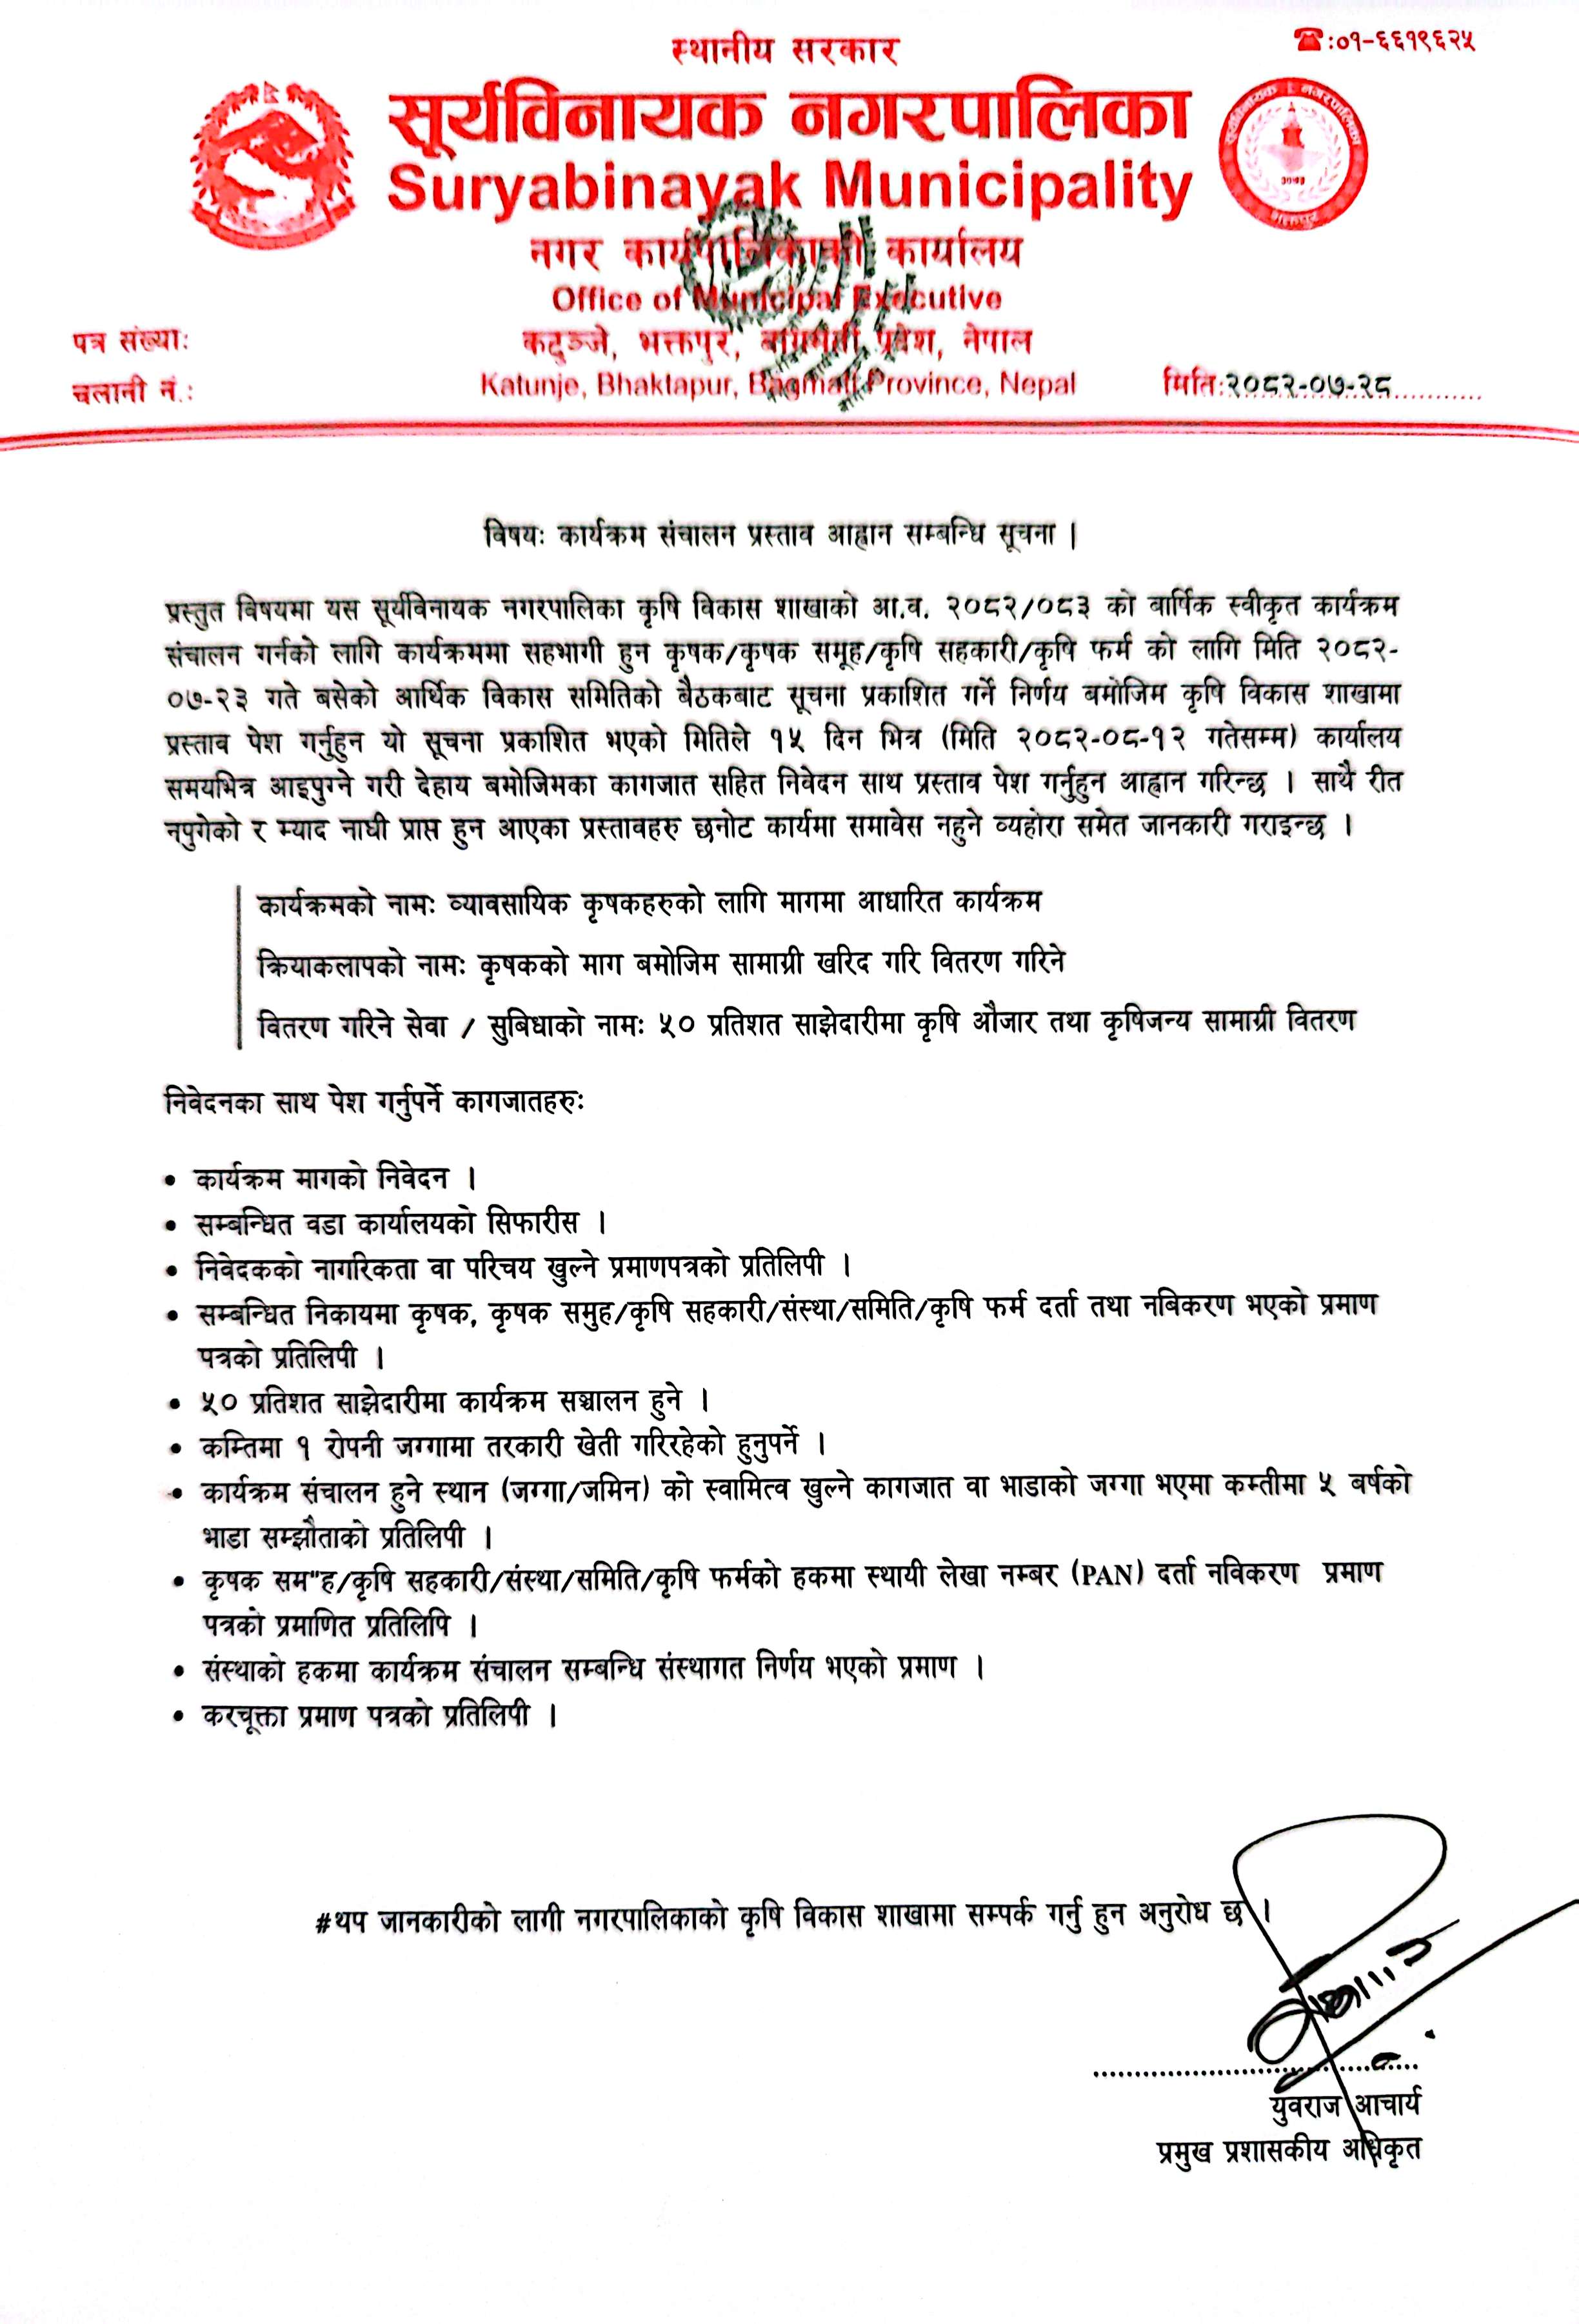 स्थानीय सरकार
☎:०१-६६१९६२५
सूर्यविनायक नगरपालिका
Suryabinayak Municipality
नगर कार्यपालिकाको कार्यालय
Office of Municipal Executive
कटुञ्जे, भक्तपुर, बागमती प्रदेश, नेपाल
Katunje, Bhaktapur, Bagmati Province, Nepal
पत्र संख्या:
चलानी नं.:
मिति:२०८२-०७-२८
विषयः कार्यक्रम संचालन प्रस्ताव आह्वान सम्बन्धि सूचना |
प्रस्तुत विषयमा यस सूर्यविनायक नगरपालिका कृषि विकास शाखाको आ.व. २०८२/०८३ को बार्षिक स्वीकृत कार्यक्रम
संचालन गर्नको लागि कार्यक्रममा सहभागी हुन कृषक/कृषक समूह/कृषि सहकारी/कृषि फर्म को लागि मिति २०८२-
०७-२३ गते बसेको आर्थिक विकास समितिको बैठकबाट सूचना प्रकाशित गर्ने निर्णय बमोजिम कृषि विकास शाखामा
प्रस्ताव पेश गर्नुहुन यो सूचना प्रकाशित भएको मितिले १५ दिन भित्र (मिति २०८२-०८-१२ गतेसम्म) कार्यालय
समयभित्र आइपुग्ने गरी देहाय बमोजिमका कागजात सहित निवेदन साथ प्रस्ताव पेश गर्नुहुन आह्वान गरिन्छ । साथै रीत
नपुगेको र म्याद नाघी प्राप्त हुन आएका प्रस्तावहरु छनोट कार्यमा समावेस नहुने व्यहोरा समेत जानकारी गराइन्छ ।
कार्यक्रमको नामः व्यावसायिक कृषकहरुको लागि मागमा आधारित कार्यक्रम
क्रियाकलापको नामः कृषकको माग बमोजिम सामाग्री खरिद गरि वितरण गरिने
वितरण गरिने सेवा / सुबिधाको नामः ५० प्रतिशत साझेदारीमा कृषि औजार तथा कृषिजन्य सामाग्री वितरण
निवेदनका साथ पेश गर्नुपर्ने कागजातहरुः
• कार्यक्रम मागको निवेदन ।
• सम्बन्धित वडा कार्यालयको सिफारीस ।
• निवेदकको नागरिकता वा परिचय खुल्ने प्रमाणपत्रको प्रतिलिपी ।
• सम्बन्धित निकायमा कृषक, कृषक समुह/कृषि सहकारी/संस्था/समिति/कृषि फर्म दर्ता तथा नबिकरण भएको प्रमाण
पत्रको प्रतिलिपी ।
• ५० प्रतिशत साझेदारीमा कार्यक्रम सञ्चालन हुने ।
• कम्तिमा १ रोपनी जग्गामा तरकारी खेती गरिरहेको हुनुपर्ने ।
• कार्यक्रम संचालन हुने स्थान (जग्गा/जमिन) को स्वामित्व खुल्ने कागजात वा भाडाको जग्गा भएमा कम्तीमा ५ बर्षको
भाडा सम्झौताको प्रतिलिपी ।
• कृषक सम"ह/कृषि सहकारी/संस्था/समिति/कृषि फर्मको हकमा स्थायी लेखा नम्बर (PAN) दर्ता नविकरण प्रमाण
पत्रको प्रमाणित प्रतिलिपि ।
• संस्थाको हकमा कार्यक्रम संचालन सम्बन्धि संस्थागत निर्णय भएको प्रमाण ।
• करचूक्ता प्रमाण पत्रको प्रतिलिपी ।
#थप जानकारीको लागी नगरपालिकाको कृषि विकास शाखामा सम्पर्क गर्नु हुन अनुरोध छ ।
युवराज आचार्य
प्रमुख प्रशासकीय अधिकृत